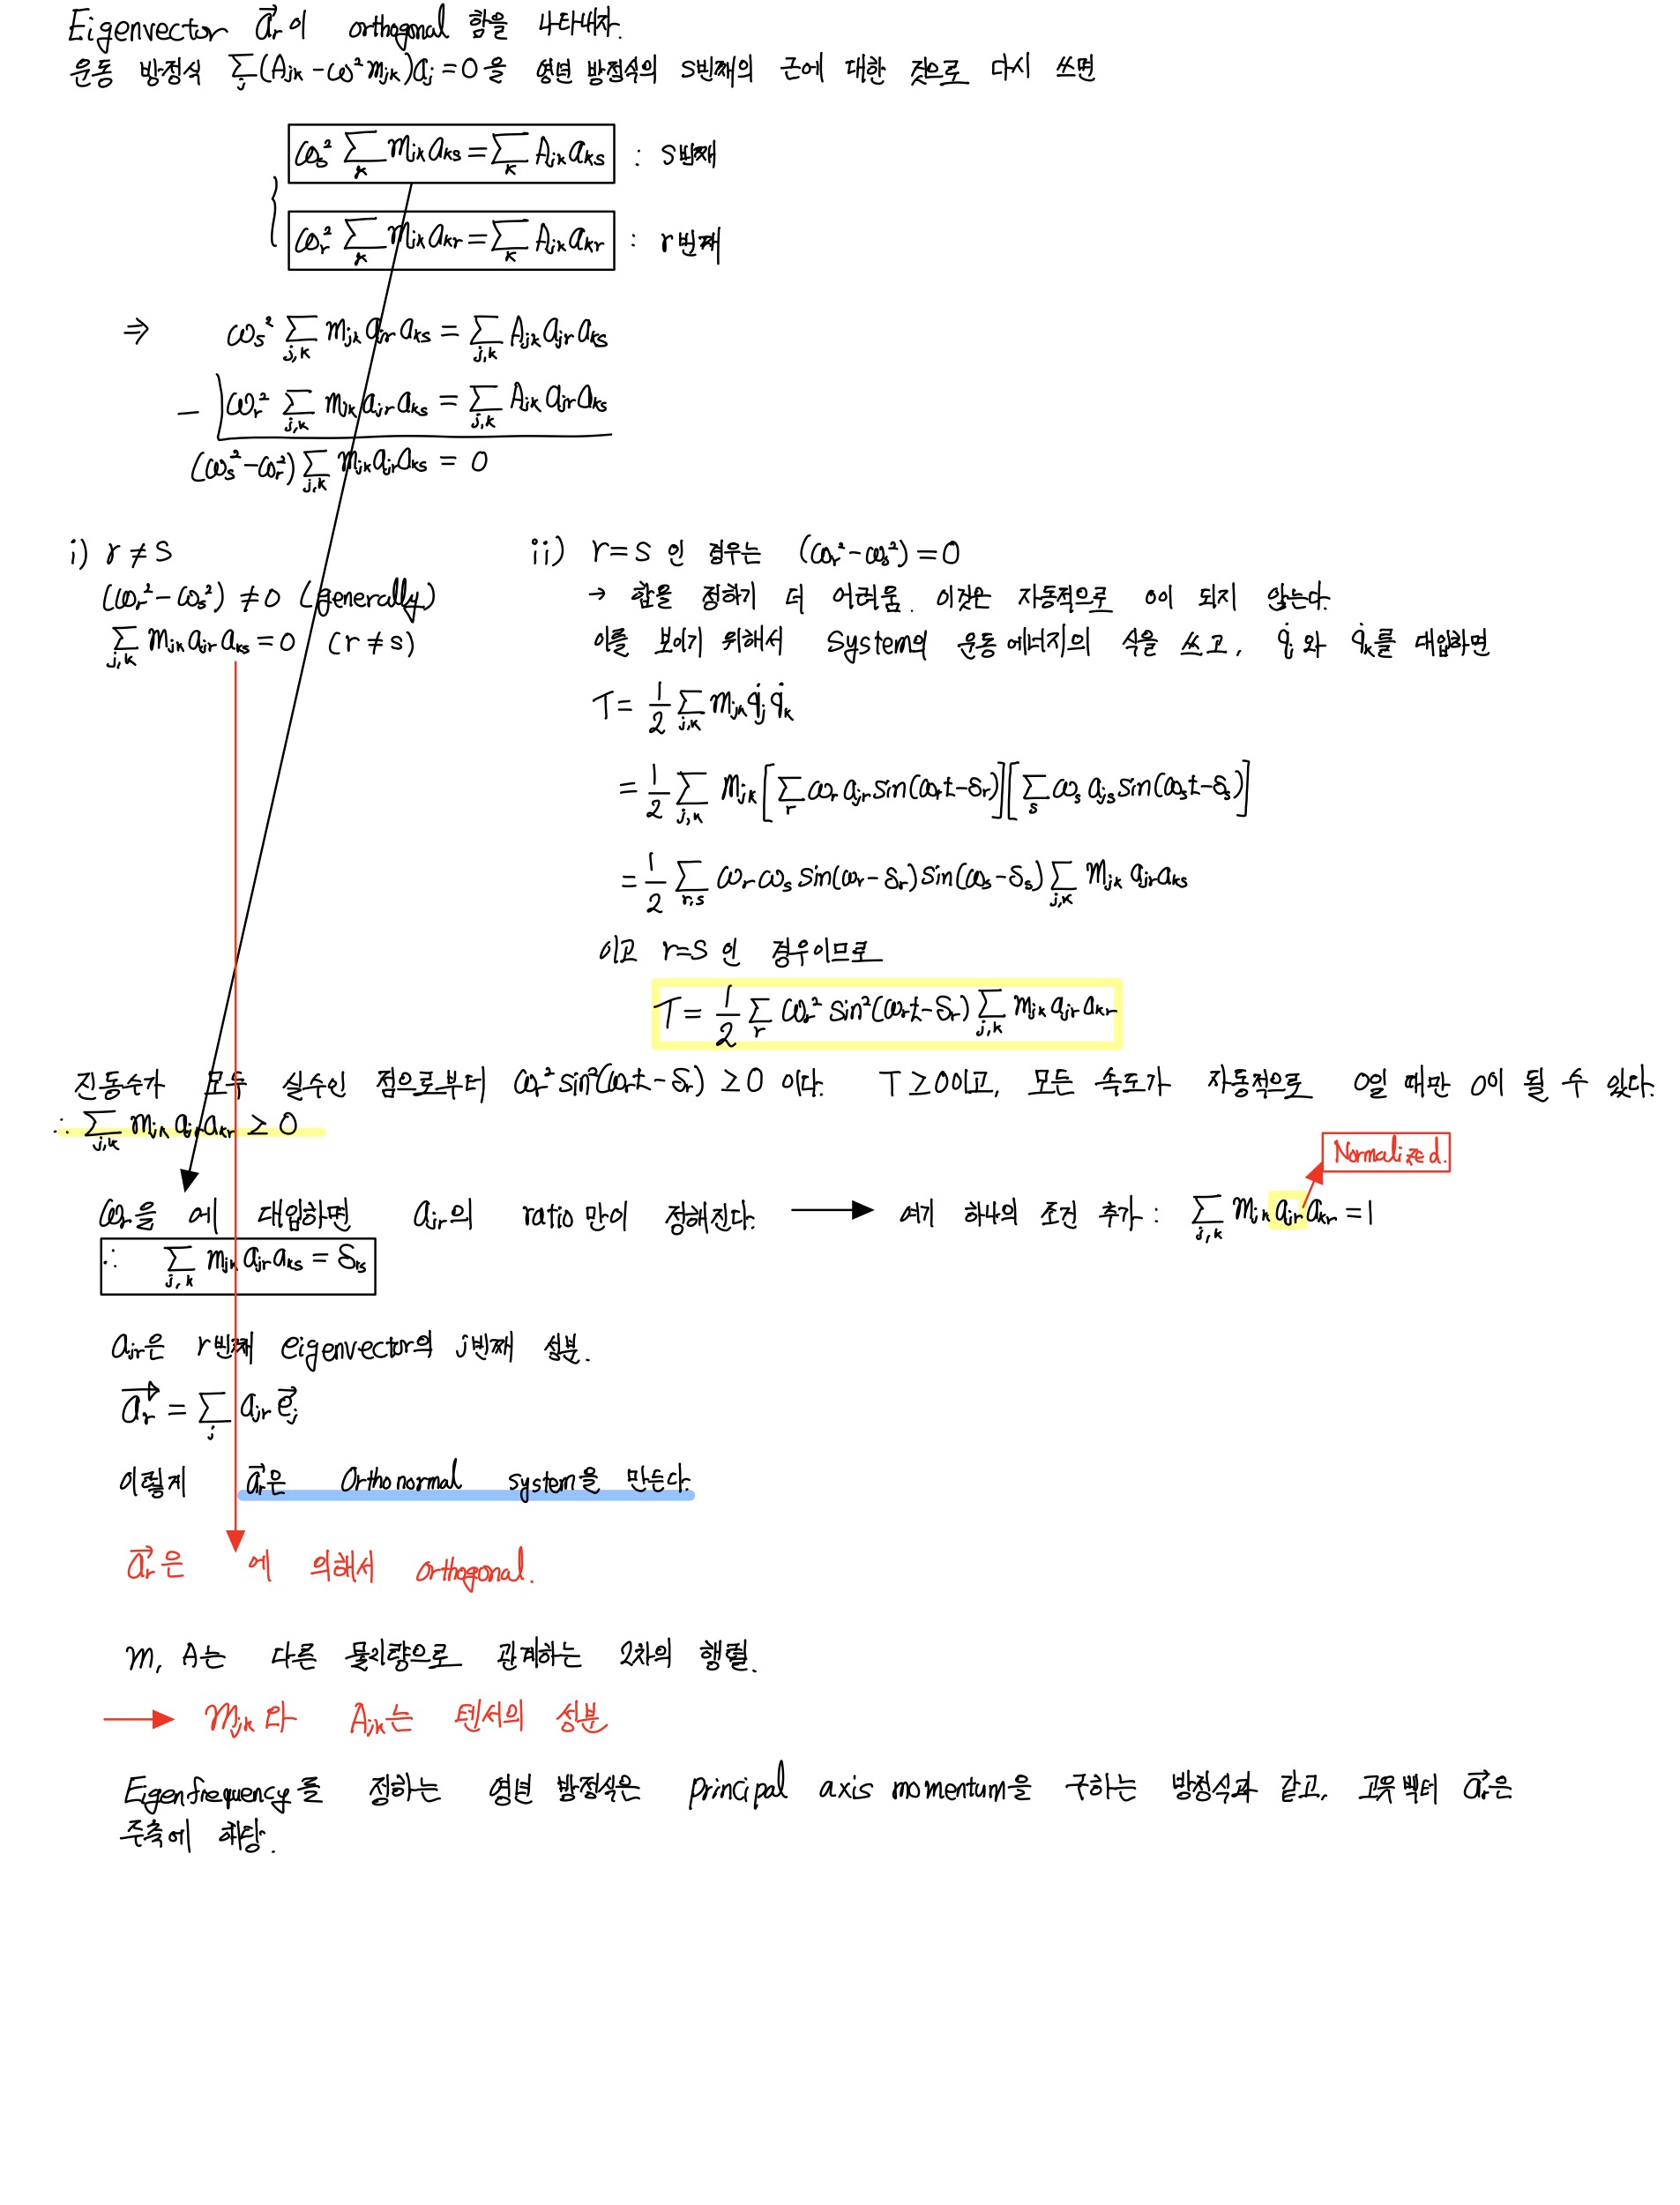 Eigenvector a⃗r이 orthogonal 함을 나타내자.
운동 방정식 Σ_j (A_jk - ω² m_jk) a_j = 0 을 영년 방정식의 s번째의 근에 대한 것으로 다시 쓰면
ω_s² Σ_k m_jk a_ks = Σ_k A_jk a_ks : s번째
ω_r² Σ_k m_jk a_kr = Σ_k A_jk a_kr : r번째
⇒ ω_s² Σ_{j,k} m_jk a_jr a_ks = Σ_{j,k} A_jk a_jr a_ks
- ω_r² Σ_{j,k} m_jk a_jr a_ks = Σ_{j,k} A_jk a_jr a_ks
(ω_s² - ω_r²) Σ_{j,k} m_jk a_jr a_ks = 0
i) r ≠ s
(ω_r² - ω_s²) ≠ 0 (generally)
Σ_{j,k} m_jk a_jr a_ks = 0 (r ≠ s)
ii) r = s 인 경우는 (ω_r² - ω_s²) = 0
→ 합을 정하기 더 어려움. 이것은 자동적으로 0이 되지 않는다.
이를 보이기 위해서 System의 운동에너지의 식을 쓰고, q̇_j 와 q̇_k를 대입하면
T = 1/2 Σ_{j,k} m_jk q̇_j q̇_k
= 1/2 Σ_{j,k} m_jk [Σ_r ω_r a_jr sin(ω_r t - δ_r)][Σ_s ω_s a_js sin(ω_s t - δ_s)]
= 1/2 Σ_{r,s} ω_r ω_s sin(ω_r - δ_r) sin(ω_s - δ_s) Σ_{j,k} m_jk a_jr a_ks
이고 r=s 인 경우이므로
T = 1/2 Σ_r ω_r² sin²(ω_r t - δ_r) Σ_{j,k} m_jk a_jr a_kr
진동수가 모두 실수인 점으로부터 ω_r² sin²(ω_r t - δ_r) ≥ 0 이다. T ≥ 0이고, 모든 속도가 자동적으로 0일 때만 0이 될 수 있다.
∴ Σ_{j,k} m_jk a_jr a_kr ≥ 0
Normalized.
ω_r을 에 대입하면 a_jr의 ratio 만이 정해진다. → 여기 하나의 조건 추가 : Σ_{j,k} m_jk a_jr a_kr = 1
∴ Σ_{j,k} m_jk a_jr a_ks = δ_rs
a_jr은 r번째 eigenvector의 j번째 성분.
a⃗_r = Σ_j a_jr e⃗_j
이렇게 a⃗_r은 Orthonormal system을 만든다.
a⃗_r은 에 의해서 orthogonal.
m, A는 다른 물리량으로 관계하는 2차의 행렬.
→ m_jk 와 A_jk는 텐서의 성분
Eigenfrequency를 정하는 영년 방정식은 principal axis momentum을 구하는 방정식과 같고, 고유 벡터 a⃗_r은
주축에 해당.